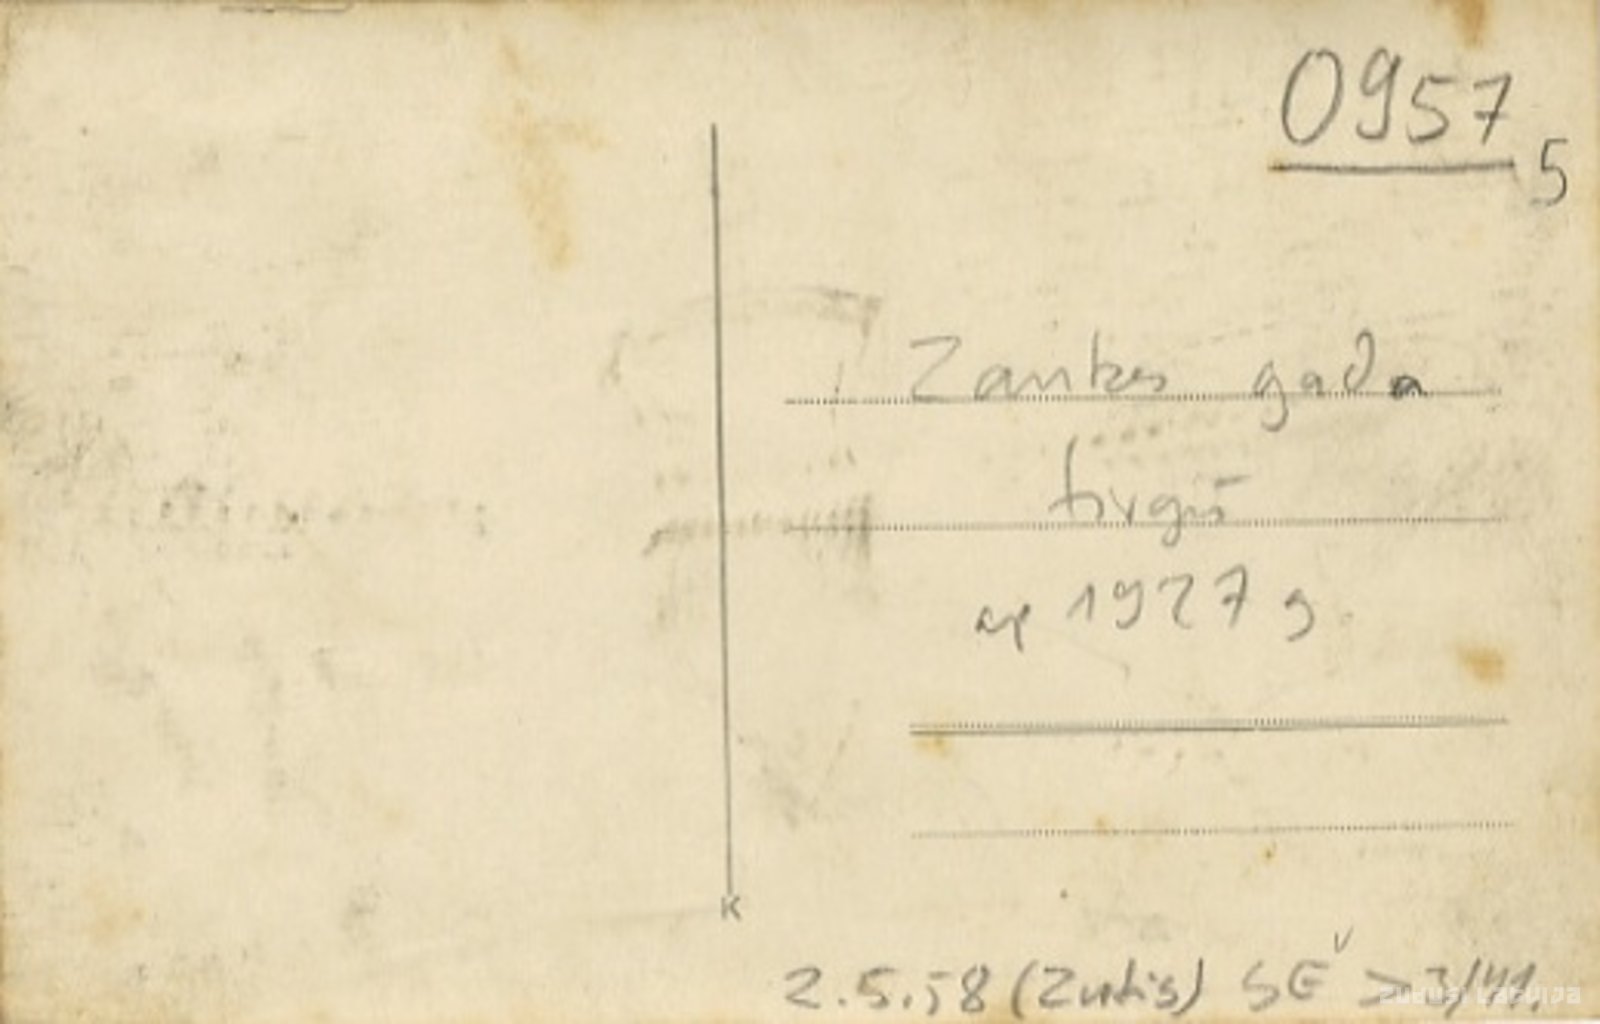 0957
5
Zantes gada
tirgus
ap 1927 g.
K
2.5.58 (Zutis) SE
ZUDUSI LATVIJA